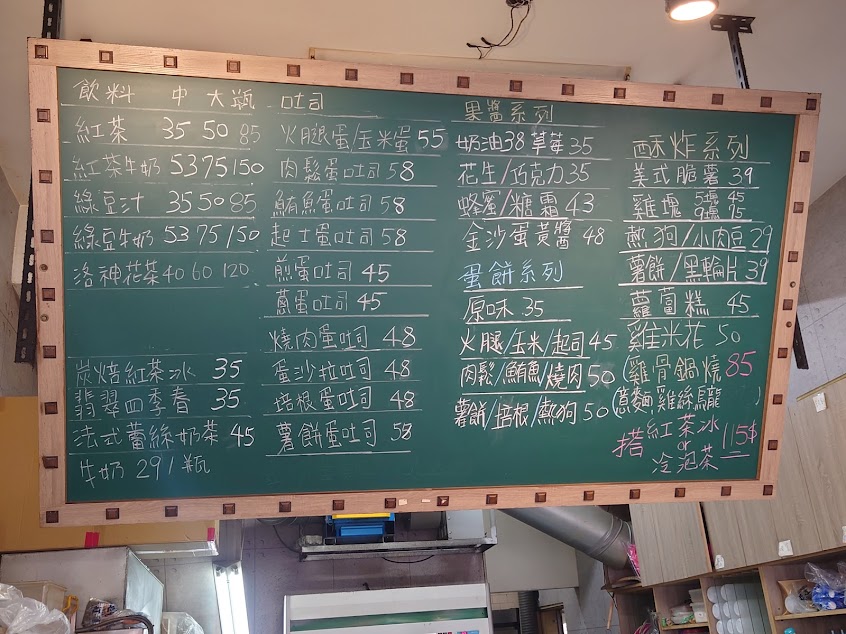 飲料 中 大 瓶
紅茶 35 50 85
紅茶牛奶 53 75 150
綠豆汁 35 50 85
綠豆牛奶 53 75 150
洛神花茶 40 60 120
炭焙紅茶冰 35
翡翠四季春 35
法式蕾絲奶茶 45
牛奶 29 1瓶
吐司
火腿蛋/玉米蛋 55
肉鬆蛋吐司 58
鮪魚蛋吐司 58
起士蛋吐司 58
煎蛋吐司 45
蔥蛋吐司 45
燒肉蛋吐司 48
蛋沙拉吐司 48
培根蛋吐司 48
薯餅蛋吐司 58
果醬系列
奶油38 草莓35
花生/巧克力35
蜂蜜/糖霜 43
金沙蛋黃醬 48
蛋餅系列
原味 35
火腿/玉米/起司 45
肉鬆/鮪魚/燒肉 50
薯餅/培根/熱狗 50
酥炸系列
美式脆薯 39
雞塊 5塊 45
9塊 75
熱狗/小肉豆 29
薯餅/黑輪片 39
蘿蔔糕 45
雞米花 50
(雞骨鍋燒 85
(意麵,雞絲,烏龍)
搭 紅茶冰 or 冷泡茶 115$